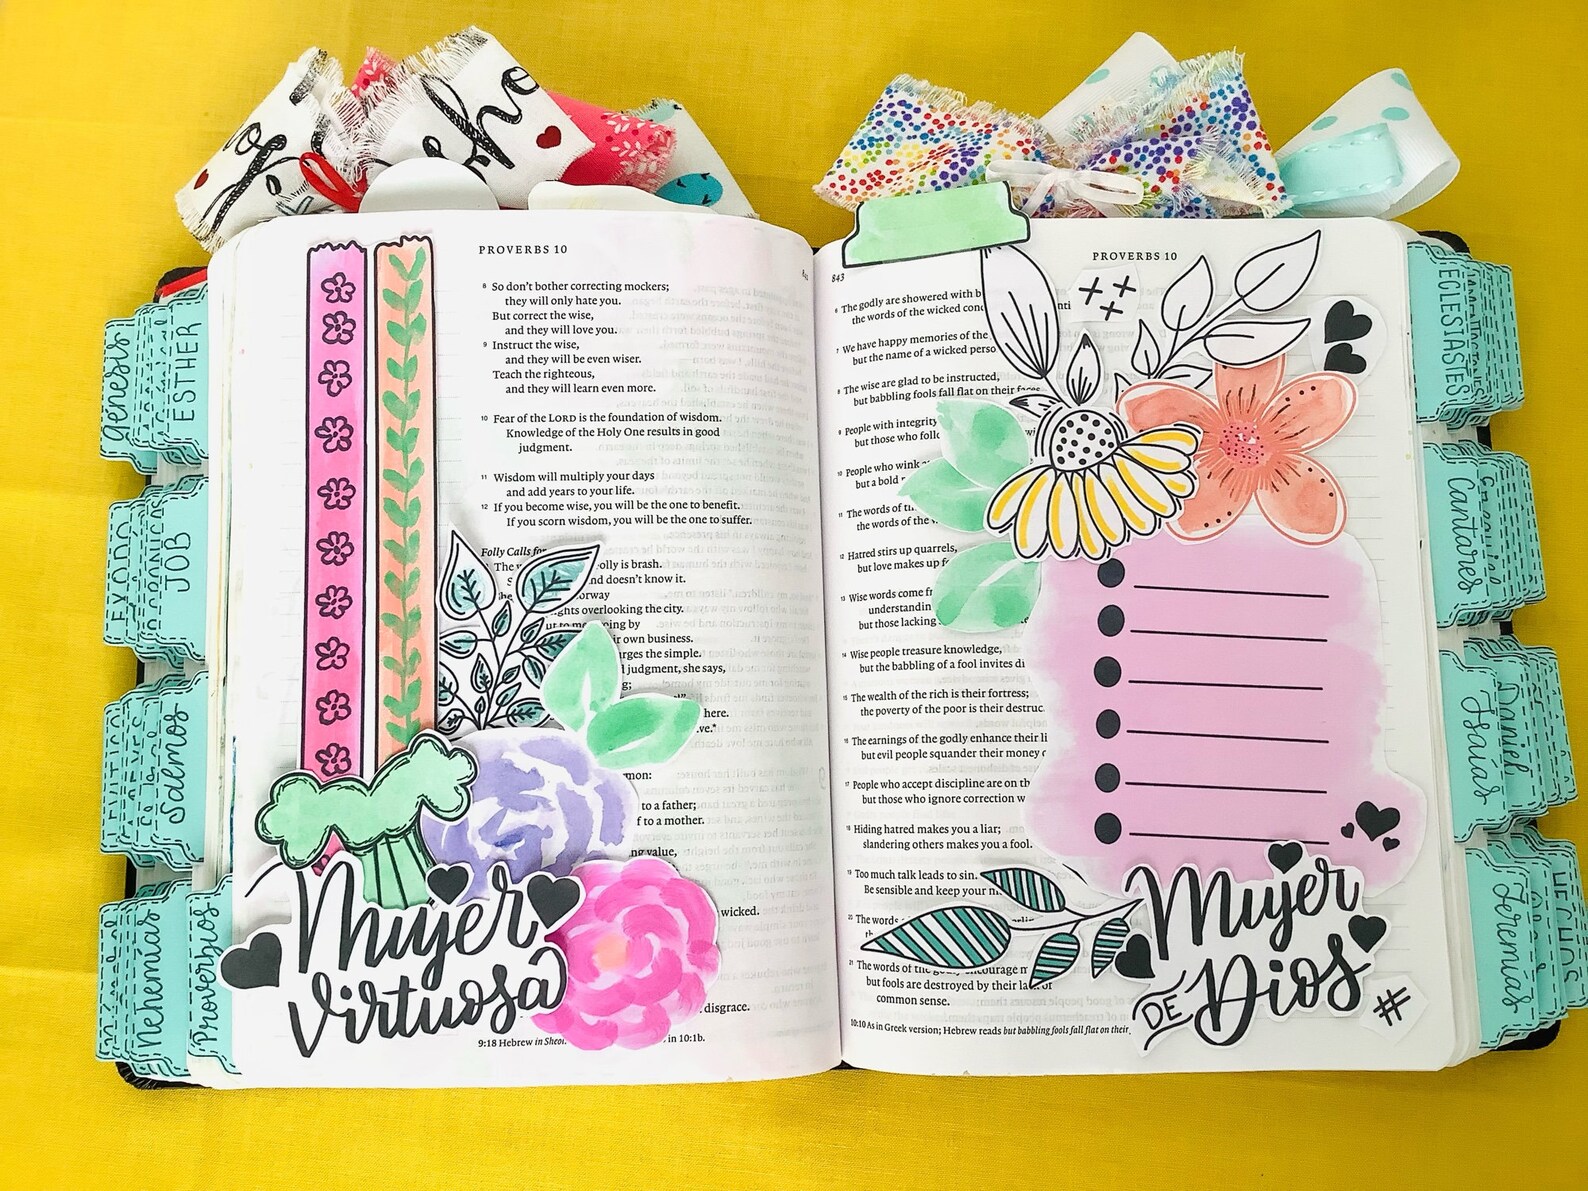 génesis
ESTHER
JOB
Salmos
Nehemías
Proverbios
PROVERBS 10
8 So don't bother correcting mockers;
they will only hate you.
But correct the wise,
and they will love you.
9 Instruct the wise,
and they will be even wiser.
Teach the righteous,
and they will learn even more.
10 Fear of the LORD is the foundation of wisdom.
Knowledge of the Holy One results in good
judgment.
11 Wisdom will multiply your days
and add years to your life.
12 If you become wise, you will be the one to benefit.
If you scorn wisdom, you will be the one to suffer.
Folly Calls for
olly is brash.
and doesn't know it.
orway
ghts overlooking the city.
ut to ing by
ir own business.
urges the simple.
judgment, she says,
here.
to a father;
to a mother.
ng value,
wicked.
disgrace.
9:18 Hebrew in Sheol in 10:1b.
Mujer
Virtuosa
843
PROVERBS 10
6 The godly are showered with b
the words of the wicked conc
7 We have happy memories of the
but the name of a wicked perso
8 The wise are glad to be instructed,
but babbling fools fall flat on their faces
9 People with integrity
but those who follo
10 People who wink a
but a bold
11 The words of th
the words of the
12 Hatred stirs up quarrels,
but love makes up f
13 Wise words come fr
understandin
but those lacking
14 Wise people treasure knowledge,
but the babbling of a fool invites di
15 The wealth of the rich is their fortress;
the poverty of the poor is their destruc
16 The earnings of the godly enhance their li
but evil people squander their money o
17 People who accept discipline are on th
but those who ignore correction w
18 Hiding hatred makes you a liar;
slandering others makes you a fool.
19 Too much talk leads to sin.
Be sensible and keep your m
20 The words
21 The words of the godly encourage m
but fools are destroyed by their lack of
common sense.
10:10 As in Greek version; Hebrew reads but babbling fools fall flat on their
Mujer
DE Dios
#
ECLESIASTES
Cantares
Isaías
Daniel
Jeremías